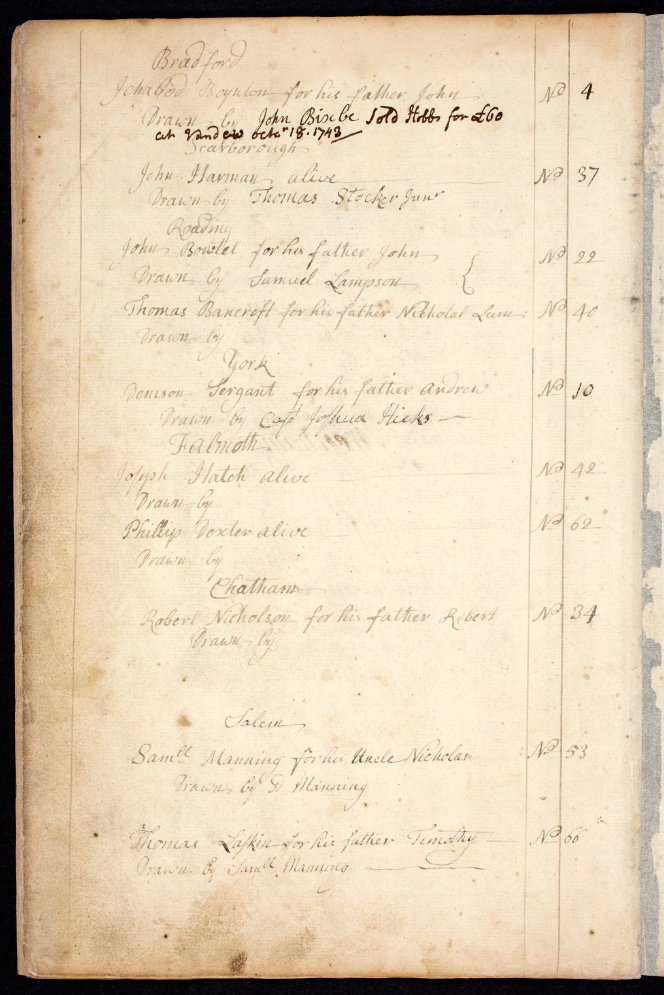 Bradford
Ichabod Boynton for his father John Nº 4
Drawn by John Bixbe Sold Hobbs for £60
at Vandew octr 18. 1743
Scarborough
John Harman alive Nº 37
Drawn by Thomas Stocker Junr
Reading
John Bowtel for his father John Nº 22
Drawn by Samuel Lampson
Thomas Bancroft for his father Nicholas Lum: Nº 40
Drawn by
York
Denison Sergant for his father Andrew Nº 10
Drawn by Capt Joshua Hicks
Falmoth
Joseph Hatch alive Nº 42
Drawn by
Phillip Dexter alive Nº 62
Drawn by
Chatham
Robert Nicholson for his father Robert Nº 34
Drawn by
Salem
Samll Manning for his Uncle Nicholas Nº 53
Drawn by D Manning
Thomas Laskin for his father Timothy Nº 66
Drawn by Samll Manning